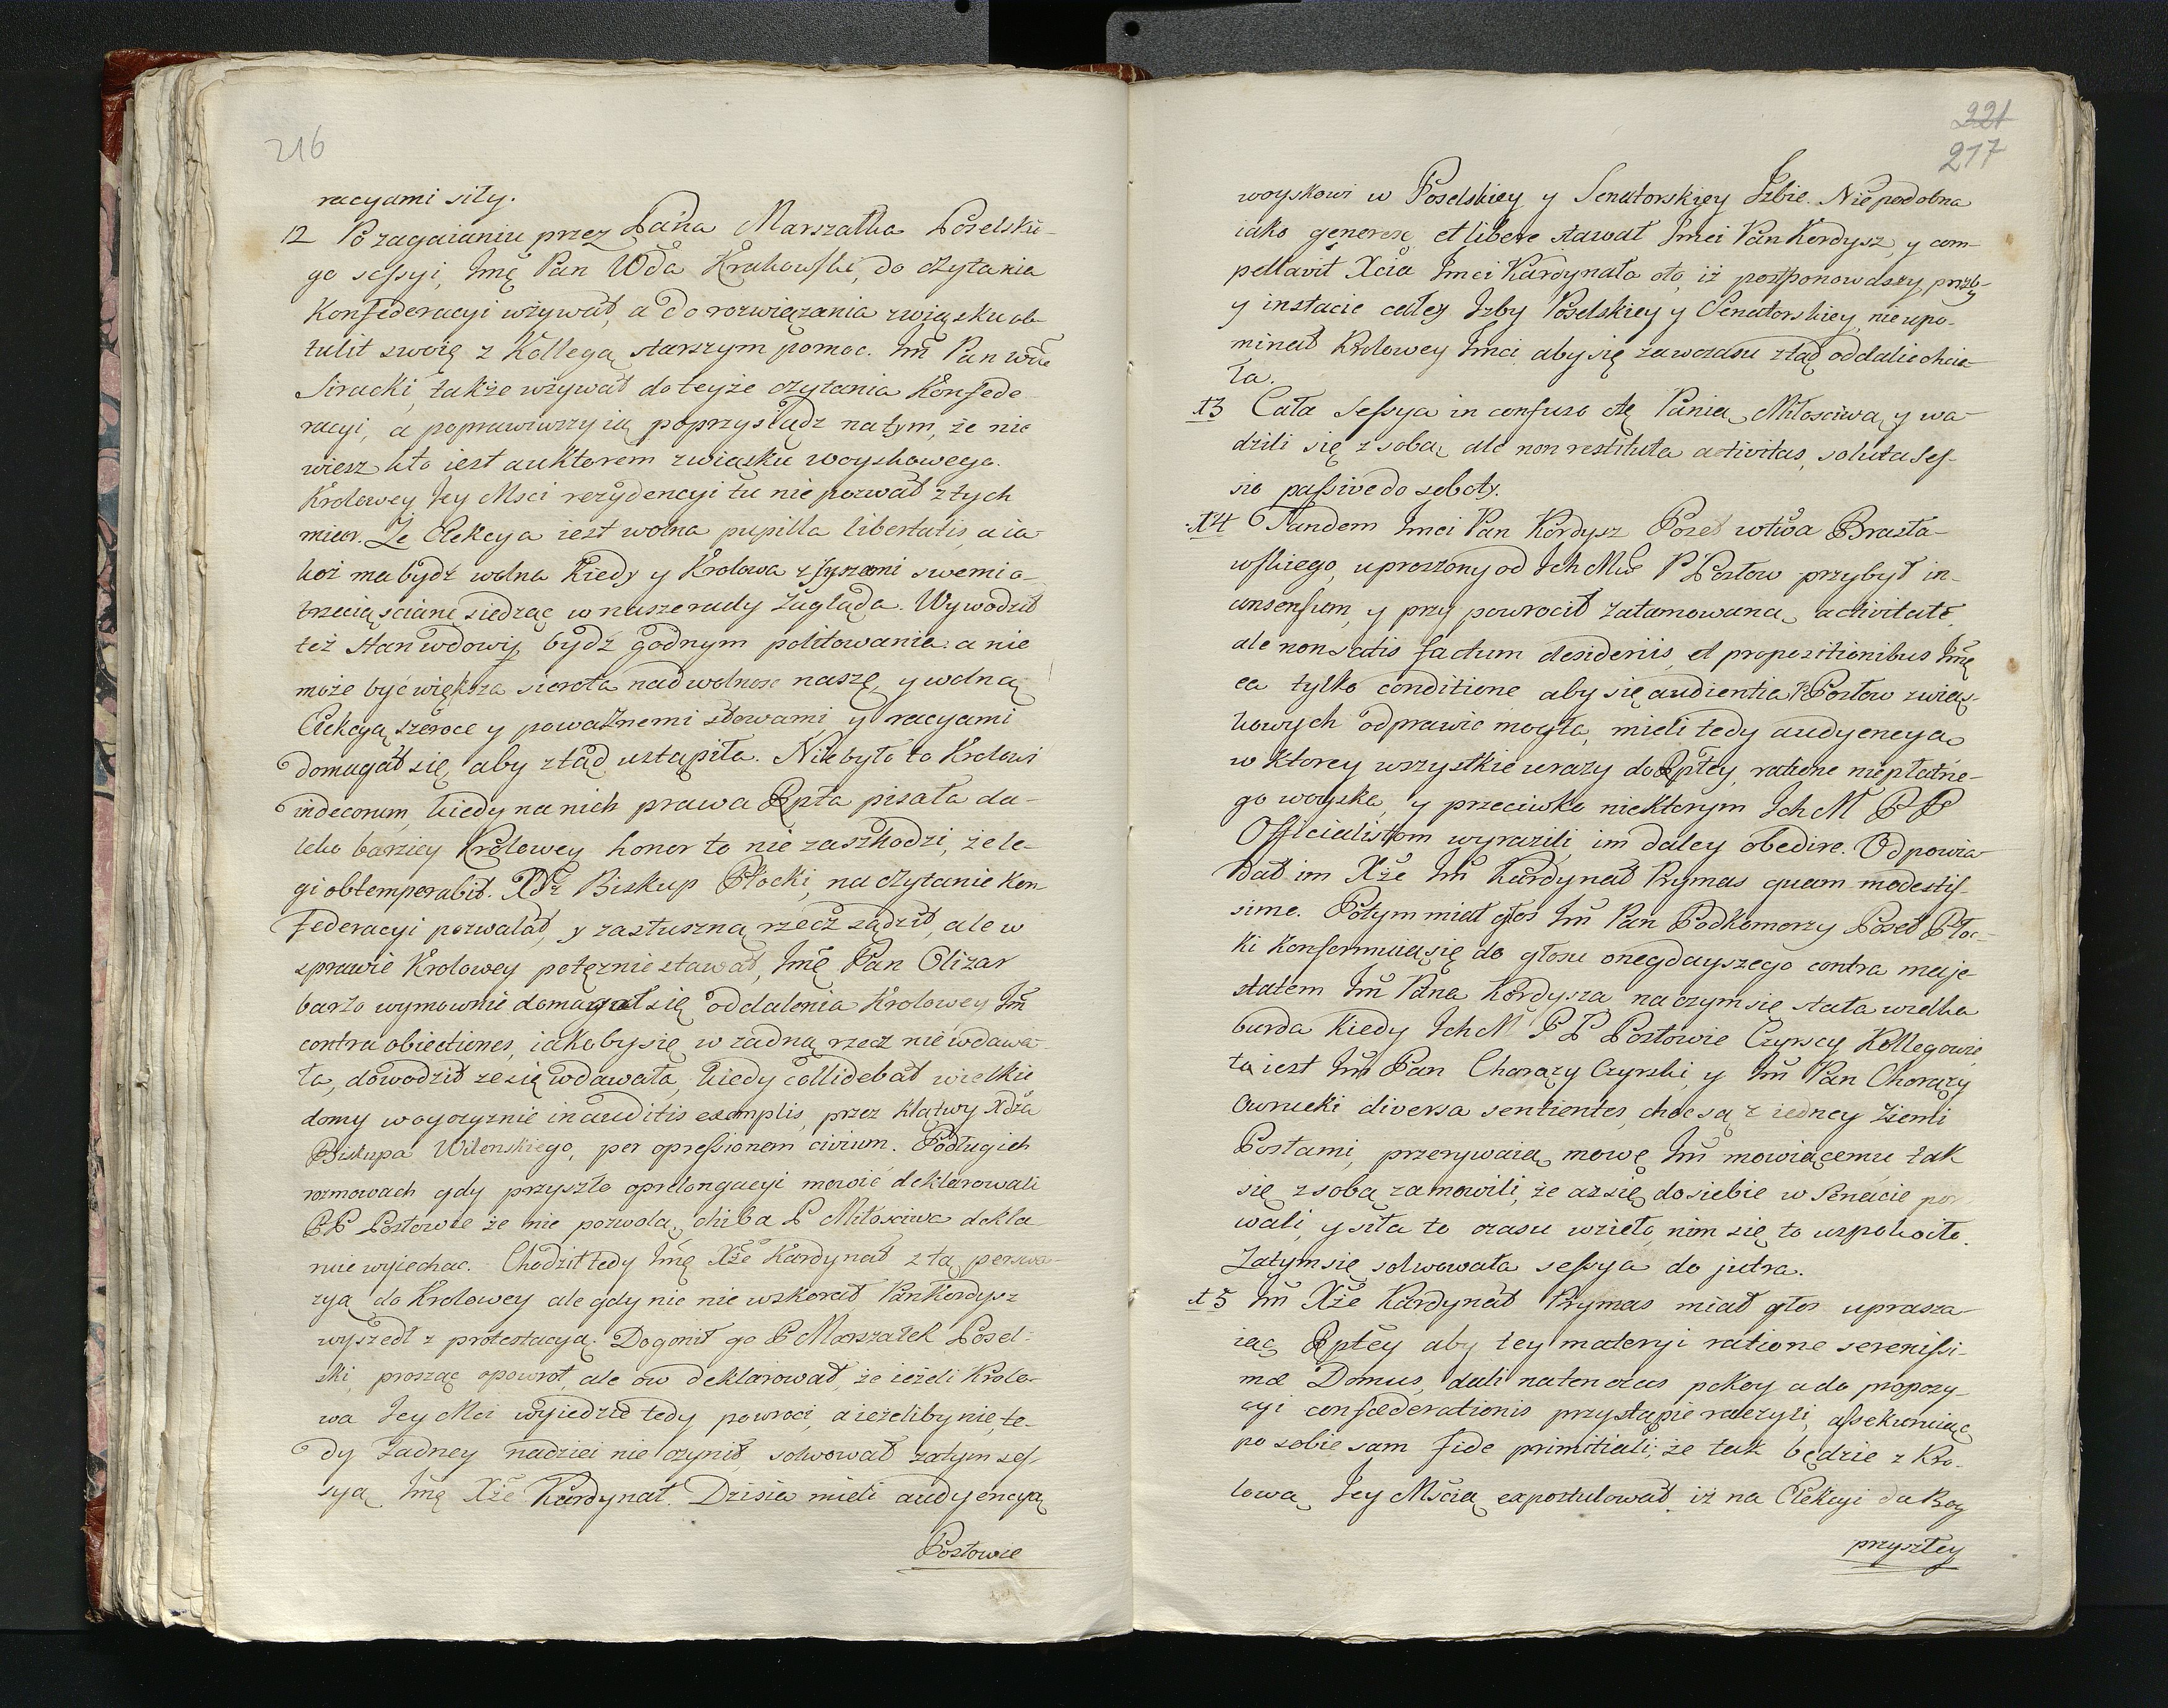 216
racyami siły.
12 Po zagaianiu przez Pana Marszałka Poselski-
go sessyi, Jmę Pan Wda Krakowski, do czytania
Konfederacyi wzywał, a do rozwiązania związku ob-
tulit swoię z Kollegą starszym pomoc. Jm Pan wda
Siracki, także wzywał do teyże czytania Konfede
racyi, a poprawiwszy ią poprzysiądz na tym, że nie
wiesz kto iest auktorem związku woyskowego.
Krolowey Jey Msci rezydencyi tu nie pozwał z tych
miar. Że Elekcya iest wolna pupilla libertatis, a ia-
koż ma bydź wolna kiedy y Krolowa z synami swemi o
trzecią scianę siedząc w nasze rady zagląda. Wywodził
też stan wdowij bydź godnym politowania. a nie
może być większa sierota nad wolnosc naszę, y wolną
Elekcyą szeroce y poważnemi słowami y racyami
domagał się aby ztąd ustąpiła. Nie było to Krolowi
indecorum, kiedy na nich prawa Rpta pisała da-
leko barziey Krolowey honor to nie zaszkodzi, że le-
gi obtemperabit. Xdz Biskup Płocki, na czytanie Kon
federacyi pozwalał, y za słuszną rzecz sądził, ale w
sprawie Krolowey potęznie stawał, Jmę Pan Olizar
barzo wymownie domagał się oddalenia Krolowey Jm
contra obiectiones, iakoby się w żadną rzecz nie wdawa-
ła, dowodził ze się wdawała, kiedy collidebat wielkie
domy w oyczyznie in auditis exemplis, przez klątwy Xdza
Biskupa Wilenskiego, per opressionem civium. Po długich
rozmowach gdy przyszło o prolongacyi mowić deklarowali
PP Posłowie że nie pozwolą, chiba P Miłosciwa dekla
ruie wyiechac. Chodził tedy Jmę Xże Kardynał z tą perswa-
zyą do Krolowey ale gdy nic nie wskorał Pan Kordysz
wyszedł z protestacyą. Dogonił go P Marszałek Posel-
ski, prosząc o powrot, ale ow deklarował, że ieżeli Krolo-
wa Jey Mci wyiedzie tedy powroci, a ieżeliby nie, te-
dy żadney nadziei nie czynił, solwował zatym ses-
syą Jmę Xże Kardynał. Dzisia mieli audyencyą
Posłowie
221
217
woyskowi w Poselskiey y Senatorskiey Izbie. Niepodobna
iako generose et libere stawał Jmci Pan Kordysz, y com-
pellavit Xcia Jmci Kardynała oto, iż postponowawszy prozby
y instacie całey Izby Poselskiey y Senatorskiey, nie upo-
minał Krolowey Jmci aby się zawczasu ztąd oddalic chcia
ła.
13 Cała Sessya in confuso otę Panią Miłosciwą y wa-
dzili się z sobą ale non restituta activitas, soluta ses-
sio passive do soboty.
14 Tandem Jmci Pan Kordysz Poseł wtwa Brasła-
wskiego, uproszony od Ich Mw P Posłow przybył in-
consensum, y przy powrocił zatamowaną activitatē,
ale non satis factum desideriis, et propozitionibus Jmę
ea tylko conditione aby się audientia P Posłow związ-
kowych odprawic mogła, mieli tedy audyencyą
w ktorey wszystkie urazy do Rptey, ratione niepłatne-
go woyska, y przeciwko niektorym Ich M PP
Officialistom wyrazili im daley obedire. Odpowia
dał im Xże Jm Kardynał Prymas quam modestis-
sime. Potym miał głos Jm Pan Podkomorzy Poseł Płoc-
ki konformuią się do głosu onegdayszego contra maje
statem Jm Pana Kordysza na czym się stała wielka
burda kiedy Ich M PP Posłowie Czyrscy Kollegowie,
to iest Jm Pan Chorązy Czyrski, y Jm Pan Chorązy
Owrucki diversa sentientes, choc są z iedney Ziemi
Posłami, przerywaią mowę Jm mowiącemu tak
się z sobą zamowili, że az się do siebie w Senacie por
wali, y siła to czasu wzieło nim się to uspokoiło.
Zatym się solwowała sessya do jutra.
15 Jm Xże Kardynał Prymas miał głos uprasza-
iąc Rptey aby tey materyi ratione serenissi-
mæ Domus, dali naten czas pokoy a do propozy-
cyi confæderationis przystąpic raczyli, assekuruiąc
po sobie sam fide primitiali; że tak będzie z Kro-
lową Jey Mścią expostulował, iż na Elekcyi da Bog
przyszłey